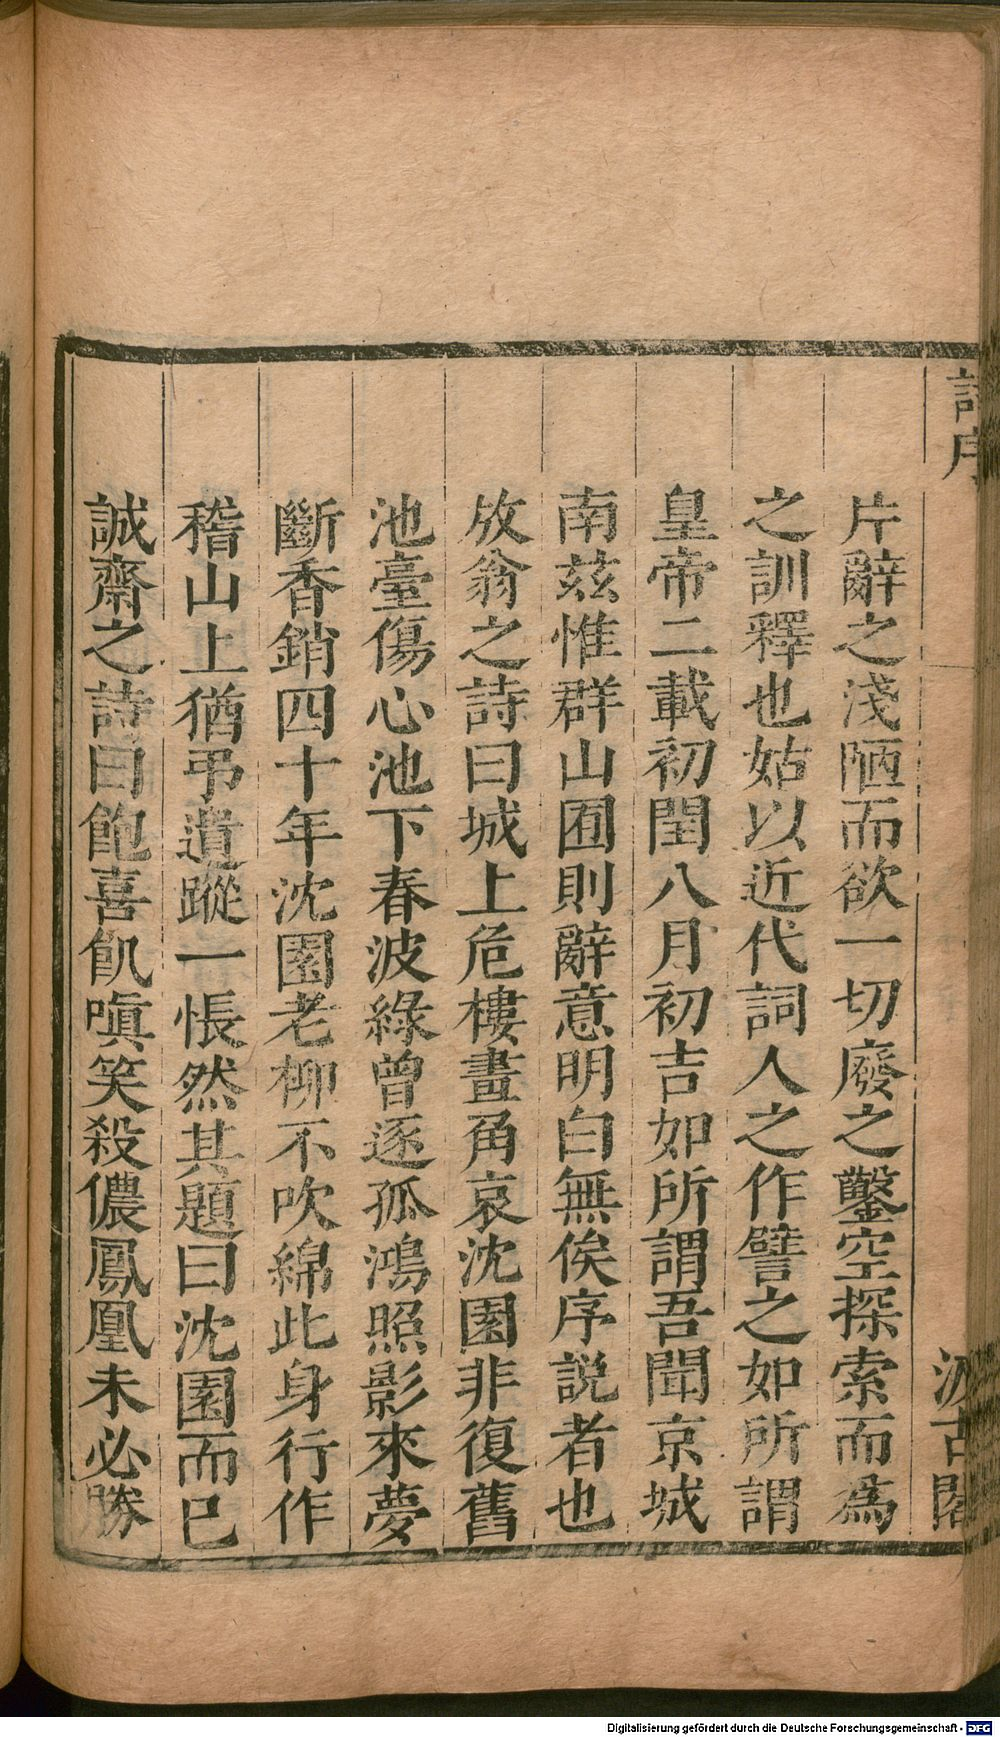 詩序
汲古閣
片辭之淺陋而欲一切廢之鑿空探索而爲
之訓釋也姑以近代詞人之作譬之如所謂
皇帝二載初閏八月初吉如所謂吾聞京城
南茲惟群山囿則辭意明白無俟序説者也
放翁之詩曰城上危樓畫角哀沈園非復舊
池臺傷心池下春波綠曾逐孤鴻照影來夢
斷香銷四十年沈園老柳不吹綿此身行作
稽山上猶弔遺蹤一悵然其題曰沈園而巳
誠齋之詩曰飽喜飢嗔笑殺儂鳳凰未必勝
Digitalisierung gefördert durch die Deutsche Forschungsgemeinschaft - DFG